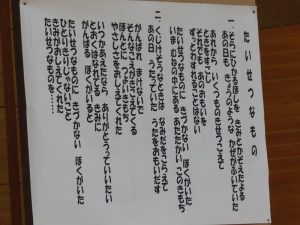 たいせつなもの
一、そらにひかるほしを きみとかぞえたよる
あのひも きょうのような かぜがふいていた
あれから いくつものきせつこえて
ときをすごし
それでも あのおもいを
ずっとわすれることはない
たいせつなものに きづかない ぼくがいた
いま むねの中にある あたたかい このきもち
二、くじけそうなときは なみだをこらえて
あの日 うたっていた うたをおもいだす
がんばれ まけないで
そんなこえが きこえてくる
ほんとに つよいきもち
やさしさを おしえてくれた
いつかあえたなら ありがとうっていいたい
とおくはなれてる きみに
がんばる ぼくがいると
たいせつなものに きづかない ぼくがいた
ひとりきりじゃないこと
きみがおしえてくれた
たいせつなものを……